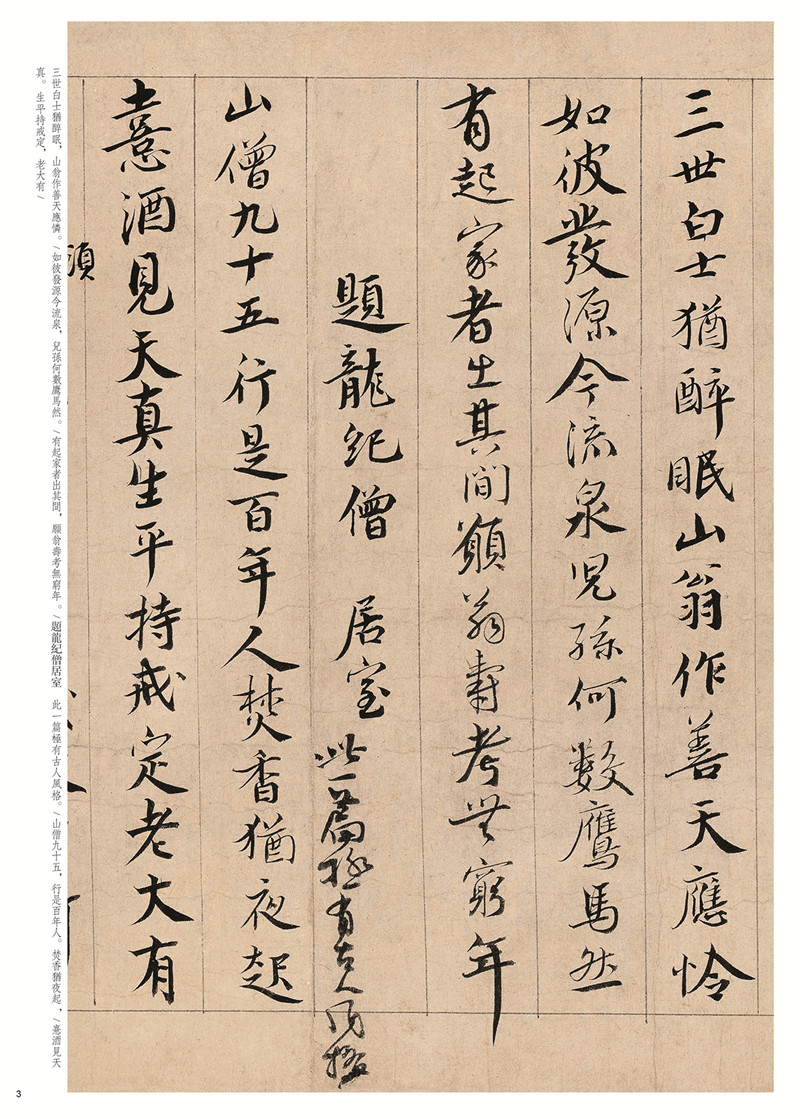 三世白士猶醉眠山翁作善天應怜
如彼發源今流泉児孫何數鷹馬然
有起家者出其間願翁壽考無窮年
題龍紀僧 居室 此一篇極有古人風格
山僧九十五行是百年人焚香猶夜起
憙酒見天真生平持戒定老大有
須
三世白士猶醉眠，山翁作善天應憐。\如彼發源今流泉，兒孫何數鷹馬然。\有起家者出其間，願翁壽考無窮年。\題龍紀僧居室 此一篇極有古人風格。\山僧九十五，行是百年人。焚香猶夜起，\憙酒見天
真。生平持戒定，老大有\
3